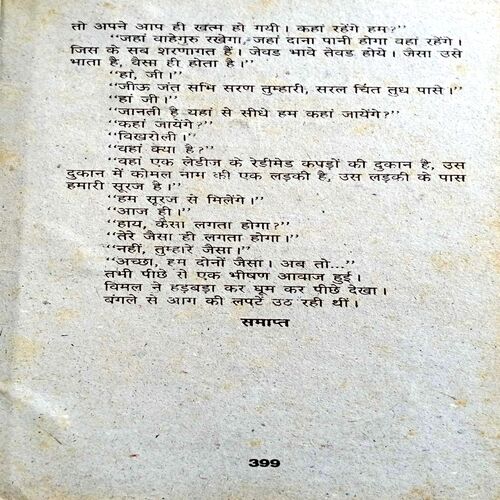 तो अपने आप ही खत्म हो गयी। कहां रहेंगे हम?"
"जहां वाहेगुरु रखेगा, जहां दाना पानी होगा वहां रहेंगे।
जिस के सब शरणागत हैं। जेवड भावे तेवड होये। जैसा उसे
भाता है, वैसा ही होता है।"
"हां, जी।"
"जीऊ जंत सभि सरण तुम्हारी, सरल चिंत तुध पासे।"
"हां जी।"
"जानती है यहां से सीधे हम कहां जायेंगे?"
"कहां जायेंगे?"
"विखरोली।"
"वहां क्या है?"
"वहां एक लेडीज के रेडीमेड कपड़ों की दुकान है, उस
दुकान में कोमल नाम की एक लड़की है, उस लड़की के पास
हमारी सूरज है।"
"हम सूरज से मिलेंगे।"
"आज ही।"
"हाय, कैसा लगता होगा?"
"तेरे जैसा ही लगता होगा।"
"नहीं, तुम्हारे जैसा।"
"अच्छा, हम दोनों जैसा। अब तो..."
तभी पीछे से एक भीषण आवाज हुई।
विमल ने हड़बड़ा कर घूम कर पीछे देखा।
बंगले से आग की लपटें उठ रही थीं।
समाप्त
399